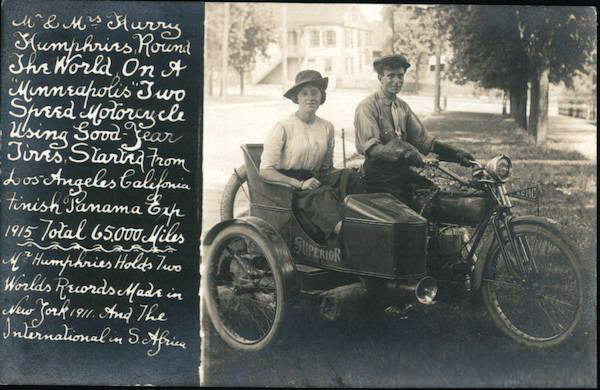 Mr & Mrs Harry
Humphries, Round
The World On A
"Minneapolis" Two
Speed Motorcycle
Using Good-Year
Tires, Started From
Los Angeles Califonia
Finish Panama Exp
1915 Total 65,000 Miles
Mr Humphries Holds Two
Worlds Records Made in
New York 1911. And The
International in S. Africa
SUPERIOR